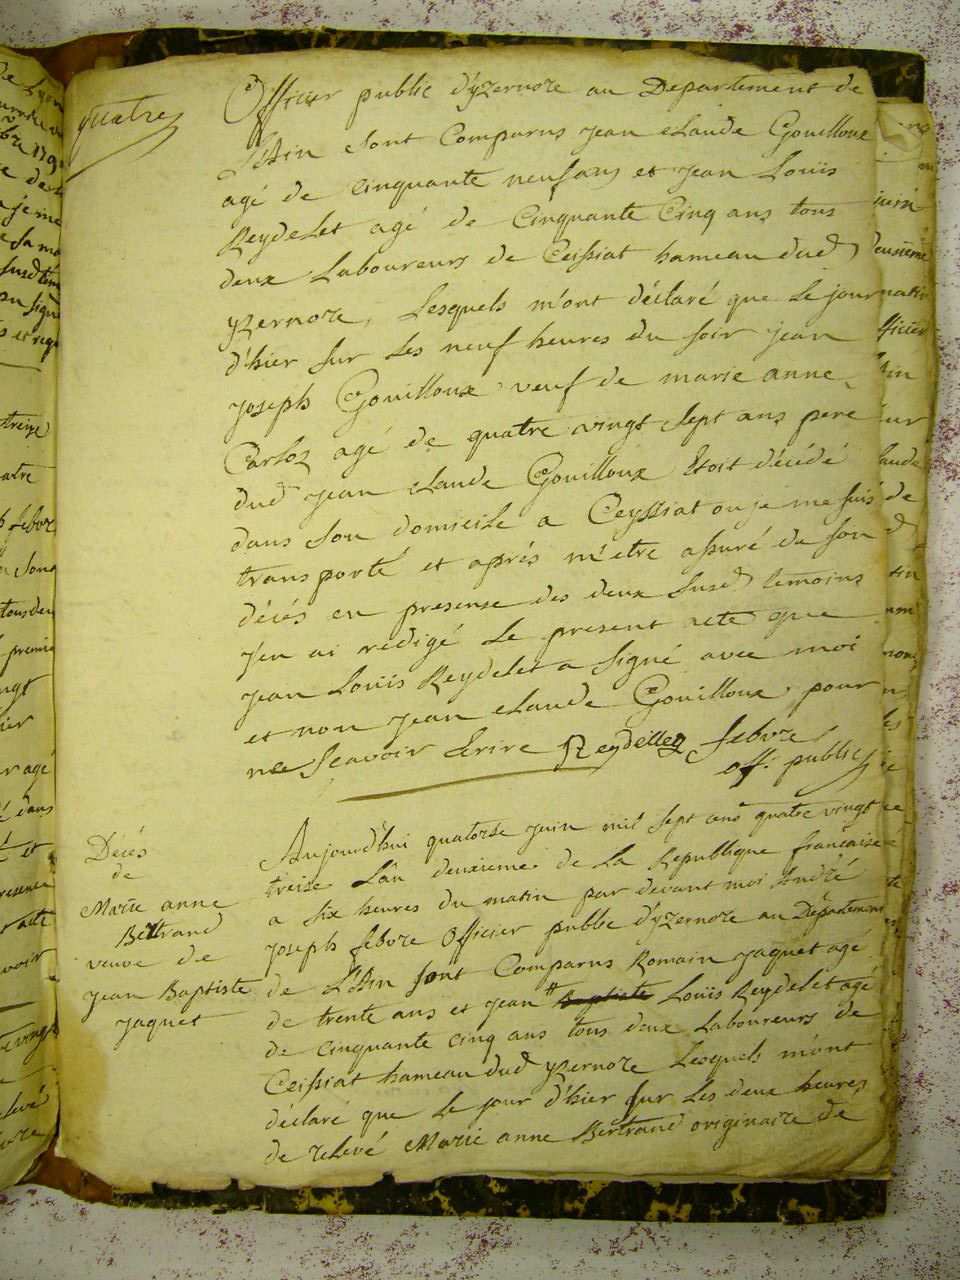 quatre
Officier public d'yzernore au Departement de
L'Ain sont Comparus jean claude Gouilloux
agé de cinquante neuf ans et jean Loüis
Reydelet agé de Cinquante Cinq ans tous
deux Laboureurs de Ceissiat hameau dud
yzernore, Lesquels m'ont déclaré que Le jour
d'hier sur Les neuf heures du soir jean
joseph Gouilloux veuf de marie anne
Carloz agé de quatre vingt sept ans pere
dud jean claude Gouilloux Etoit décédé
dans son domicile a Ceyssiat ou je me suis
transporté et aprés m'etre assuré du son
décés en presense des deux susd temoins
j'en ai rédigé Le present acte que
jean Loüis Reydelet a signé avec moi
et non jean claude Gouilloux pour
ne sçavoir Ecrire Reydellet febvre
off. public
Décés
de
Marie anne
Bertrand
veuve de
jean Baptiste
jaquet
Aujourd'hui quatorse juin mil sept ans quatre vingt
treize L'an deuxieme de La Republique française
a six heures du matin par devant moi André
joseph febvre Officier public d'yzernore au Département
de L'Ain sont Comparus Romain jaquet agé
de trente ans et jean Baptiste Loüis Reydelet agé
de cinquante cinq ans tous deux Laboureurs de
Ceissiat hameau dud yzernore Lesquels m'ont
déclaré que Le jour d'hier sur Les deux heures
de relevé Marie anne Bertrand originaire de